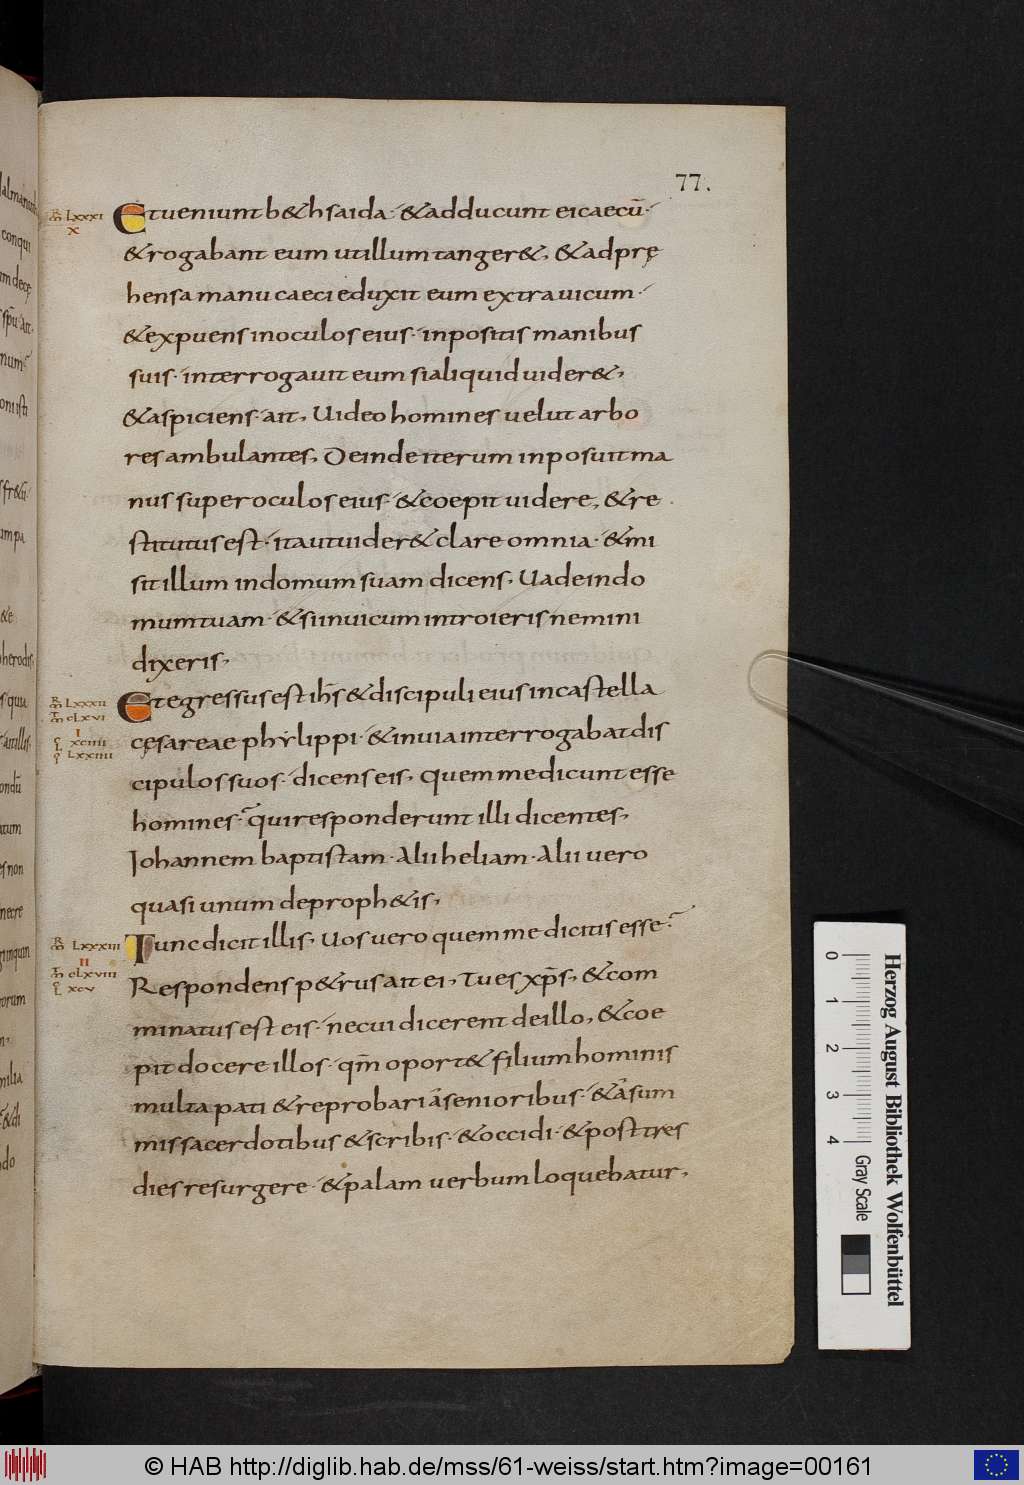 77.
Et ueniunt b&hsaida· &adducunt ei caecū·
&rogabant eum ut illum tanger&, &adprę
hensa manu caeci eduxit eum extra uicum·
&expuens in oculos eius· inpositis manibus
suis· interrogauit eum si aliquid uider&,
&aspiciens· ait, Uideo homines uelut arbo
res ambulantes, Deinde iterum inposuit ma
nus super oculos eius· &coepit uidere, &re
stitutus est· ita ut uider& clare omnia· &mi
sit illum in domum suam dicens, Uade in do
mum tuam· &si in uicum introieris nemini
dixeris,
Et egressus est ihs̄ &discipuli eius in castella
cęsareae phylippi· &in uia interrogabat dis
cipulos suos· dicens eis, quem me dicunt esse
homines· qui responderunt illi dicentes,
Johannem baptistam· alii heliam· alii uero
quasi unum de proph&is,
Tunc dicit illis, Uos uero quem me dicitis esse
Respondens p&rus ait ei, tu es xp̄s, &com
minatus est eis· ne cui dicerent de illo, &coe
pit docere illos· qm̄ oport& filium hominis
multa pati &reprobari a senioribus· &a sum
mis sacerdotibus &scribis· &occidi· &post tres
dies resurgere· &palam uerbum loquebatur,
LXXXI
X
LXXXII
cLXVI
I
XCIIII
LXXIIII
LXXXIII
II
cLXVIII
XCV
0 1 2 3 4
Gray Scale
Herzog August Bibliothek Wolfenbüttel
© HAB http://diglib.hab.de/mss/61-weiss/start.htm?image=00161